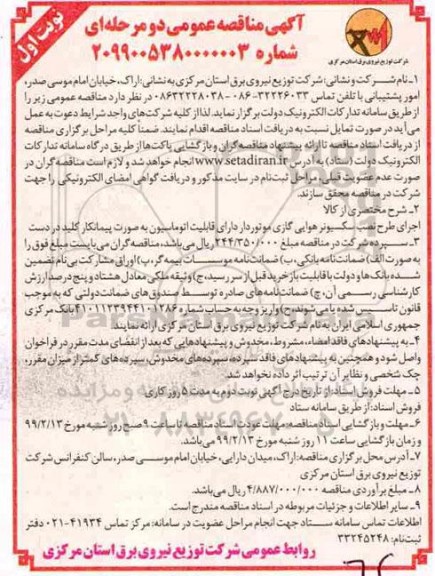 نوبت اول
آگهی مناقصه عمومی دو مرحله‌ای
شماره ۲۰۹۹۰۰۵۳۸۰۰۰۰۰۰۳
شرکت توزیع نیروی برق استان مرکزی
۱-نام شرکت و نشانی: شرکت توزیع نیروی برق استان مرکزی به نشانی: اراک، خیابان امام موسی صدر،
امور پشتیبانی با تلفن تماس ۳۲۲۲۶۰۳۳-۰۸۶ - ۰۸۶۳۲۲۲۸۰۳۸ در نظر دارد مناقصه عمومی زیر را
از طریق سامانه تدارکات الکترونیک دولت برگزار نماید. لذا از کلیه شرکت‌های واجد شرایط دعوت به عمل
می‌آید در صورت تمایل نسبت به دریافت اسناد مناقصه اقدام نمایند. ضمنا کلیه مراحل برگزاری مناقصه
از دریافت اسناد مناقصه تا ارائه پیشنهاد مناقصه‌گران و بازگشایی پاکت‌ها از طریق درگاه سامانه تدارکات
الکترونیک دولت (ستاد) به آدرس www.setadiran.ir انجام خواهد شد و لازم است مناقصه‌گران در
صورت عدم عضویت قبلی مراحل ثبت‌نام در سایت مذکور و دریافت گواهی امضای الکترونیکی را جهت
شرکت در مناقصه محقق سازند.
۲- شرح مختصری از کالا
اجرای طرح نصب سکسیونر هوایی گازی موتوردار دارای قابلیت اتوماسیون به صورت پیمانکار کلید در دست
۳- سپرده شرکت در مناقصه مبلغ ۲۴۴/۳۵۰/۰۰۰ ریال می‌باشد، مناقصه‌گران می‌بایست مبلغ فوق را
به صورت الف) ضمانت‌نامه بانکی، ب) ضمانت‌نامه موسسات بیمه‌گر، پ) اوراق مشارکت بی‌نام تضمین
شده بانک‌ها و دولت با قابلیت بازخرید قبل از سررسید، ج) وثیقه ملکی معادل هشتاد و پنج در صد ارزش
کارشناسی رسمی آن، چ) ضمانت‌نامه‌های صادره توسط صندوق‌های ضمانت دولتی که به موجب
قانون تاسیس شده یا می‌شوند، ح) واریز وجه به حساب شماره ۴۱۰۱۱۲۳۹۴۴۱۰۷۸۶ بانک مرکزی
جمهوری اسلامی ایران به نام شرکت توزیع نیروی برق استان مرکزی ارائه نمایند
۴- به پیشنهادهای فاقد امضاء، مشروط، مخدوش و پیشنهادهایی که بعد از انقضای مدت مقرر در فراخوان
واصل شود و همچنین به پیشنهادهای فاقد سپرده، سپرده‌های مخدوش، سپرده‌های کمتر از میزان مقرر،
چک شخصی و نظایر آن ترتیب اثر داده نخواهد شد.
۵- مهلت فروش اسناد: از تاریخ درج آگهی نوبت دوم به مدت ۵ روز کاری
فروش اسناد: از طریق سامانه ستاد
۶-مهلت و بازگشایی اسناد مناقصه: مهلت عودت اسناد مناقصه تا ساعت ۹ صبح روز شنبه مورخ ۹۹/۲/۱۳
و زمان بازگشایی ساعت ۱۱ روز شنبه مورخ ۹۹/۲/۱۳ می‌باشد.
۷- آدرس محل برگزاری مناقصه: اراک، میدان دارایی، خیابان امام موسی صدر، سالن کنفرانس شرکت
توزیع نیروی برق استان مرکزی
۸- مبلغ برآوردی مناقصه ۴/۸۸۷/۰۰۰/۰۰۰ ریال می‌باشد.
۹- سایر اطلاعات و جزئیات مربوطه در اسناد مناقصه مندرج است.
اطلاعات تماس سامانه ستاد جهت انجام مراحل عضویت در سامانه: مرکز تماس ۴۱۹۳۴-۰۲۱ دفتر
ثبت‌نام: ۳۳۲۴۵۲۴۸
روابط عمومی شرکت توزیع نیروی برق استان مرکزی